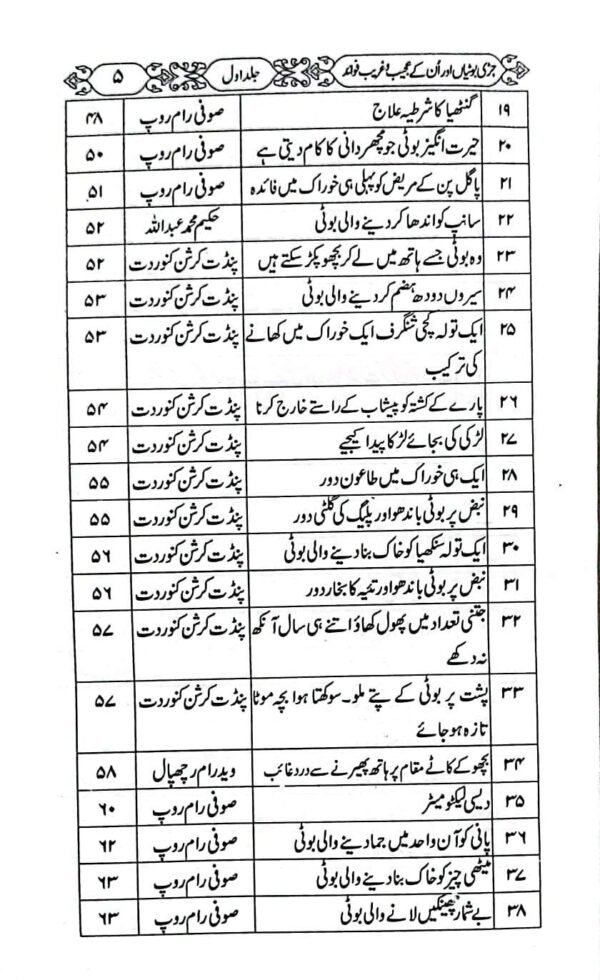 جڑی بوٹیاں اور اُن کے عجیب و غریب فوائد جلد اول ۵
۱۹ گنٹھیا کا شرطیہ علاج صوفی رام روپ ۴۸
۲۰ حیرت انگیز بوٹی جو مچھر دانی کا کام دیتی ہے صوفی رام روپ ۵۰
۲۱ پاگل پن کے مریض کو پہلی ہی خوراک میں فائدہ صوفی رام روپ ۵۱
۲۲ سانپ کو اندھا کر دینے والی بوٹی حکیم محمد عبداللہ ۵۲
۲۳ وہ بوٹی جسے ہاتھ میں لے کر بچھو پکڑ سکتے ہیں پنڈت کرشن کنوردت ۵۲
۲۴ سیروں دودھ ہضم کر دینے والی بوٹی پنڈت کرشن کنوردت ۵۳
۲۵ ایک تولہ کچی شنگرف ایک خوراک میں کھانے پنڈت کرشن کنوردت ۵۳
کی ترکیب
۲۶ پارے کے کشتہ کو پیشاب کے راستے خارج کرنا پنڈت کرشن کنوردت ۵۴
۲۷ لڑکی کی بجائے لڑکا پیدا کیجیے پنڈت کرشن کنوردت ۵۴
۲۸ ایک ہی خوراک میں طاعون دور پنڈت کرشن کنوردت ۵۵
۲۹ نبض پر بوٹی باندھو اور پلیگ کی گلٹی دور پنڈت کرشن کنوردت ۵۵
۳۰ ایک تولہ سنکھیا کو خاک بنا دینے والی بوٹی پنڈت کرشن کنوردت ۵۶
۳۱ نبض پر بوٹی باندھو اور تئیہ کا بخار دور پنڈت کرشن کنوردت ۵۶
۳۲ جتنی تعداد میں پھول کھاؤ اتنے ہی سال آنکھ پنڈت کرشن کنوردت ۵۷
نہ دکھے
۳۳ پشت پر بوٹی کے پتے ملو۔ سوکھتا ہوا بچہ موٹا پنڈت کرشن کنوردت ۵۷
تازہ ہو جائے
۳۴ بچھو کے کاٹے مقام پر ہاتھ پھیرنے سے درد غائب وید رام رچھپال ۵۸
۳۵ دیسی لیکٹومیٹر صوفی رام روپ ۶۰
۳۶ پانی کو آن واحد میں جما دینے والی بوٹی صوفی رام روپ ۶۲
۳۷ میٹھی چیز کو خاک بنا دینے والی بوٹی صوفی رام روپ ۶۳
۳۸ بے شمار چھینکیں لانے والی بوٹی صوفی رام روپ ۶۳